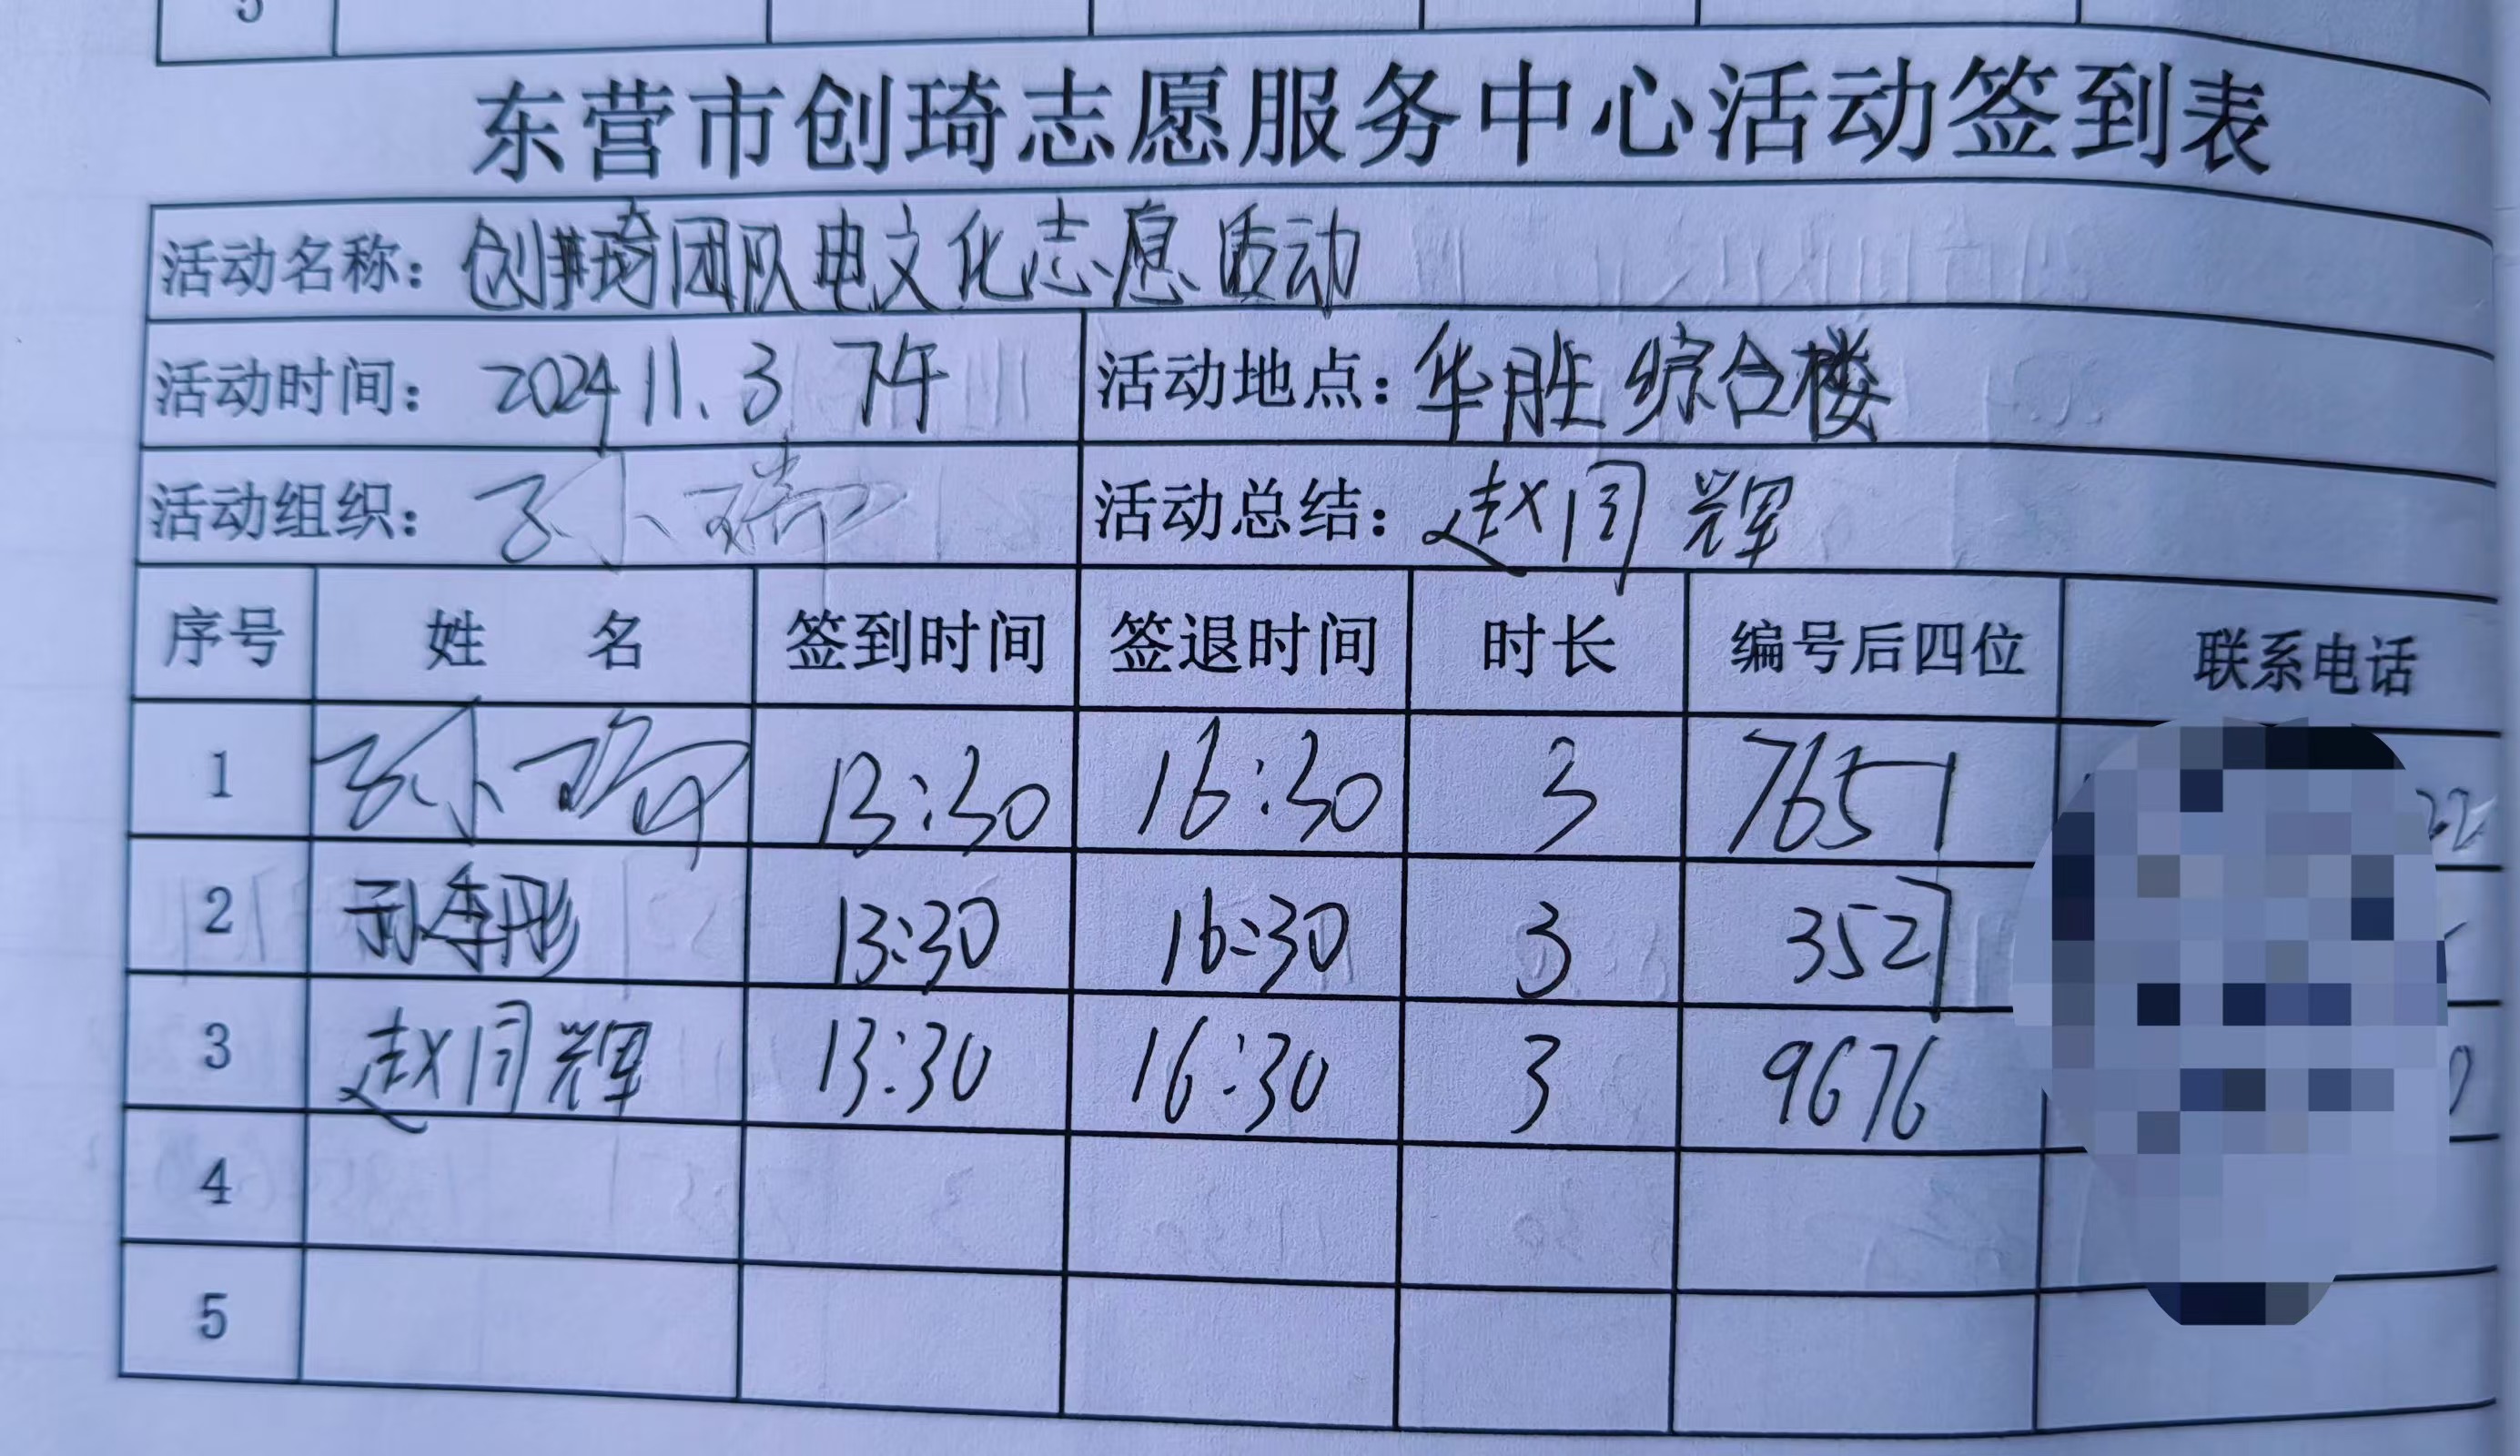 5
东营市创琦志愿服务中心活动签到表
活动名称：创琦团队电文化志愿活动
活动时间：2024 11.3 下午 活动地点：华胜综合楼
活动组织：孙瑞 活动总结：赵同辉
序号 姓 名 签到时间 签退时间 时长 编号后四位 联系电话
1 孙瑞 13:30 16:30 3 7651
2 孙李彤 13:30 16:30 3 3527
3 赵同辉 13:30 16:30 3 9676
4
5